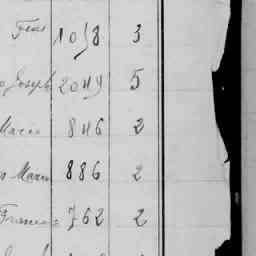 1058 3
Joseph 2049 5
Marie 846 2
Marie 886 2
762 2